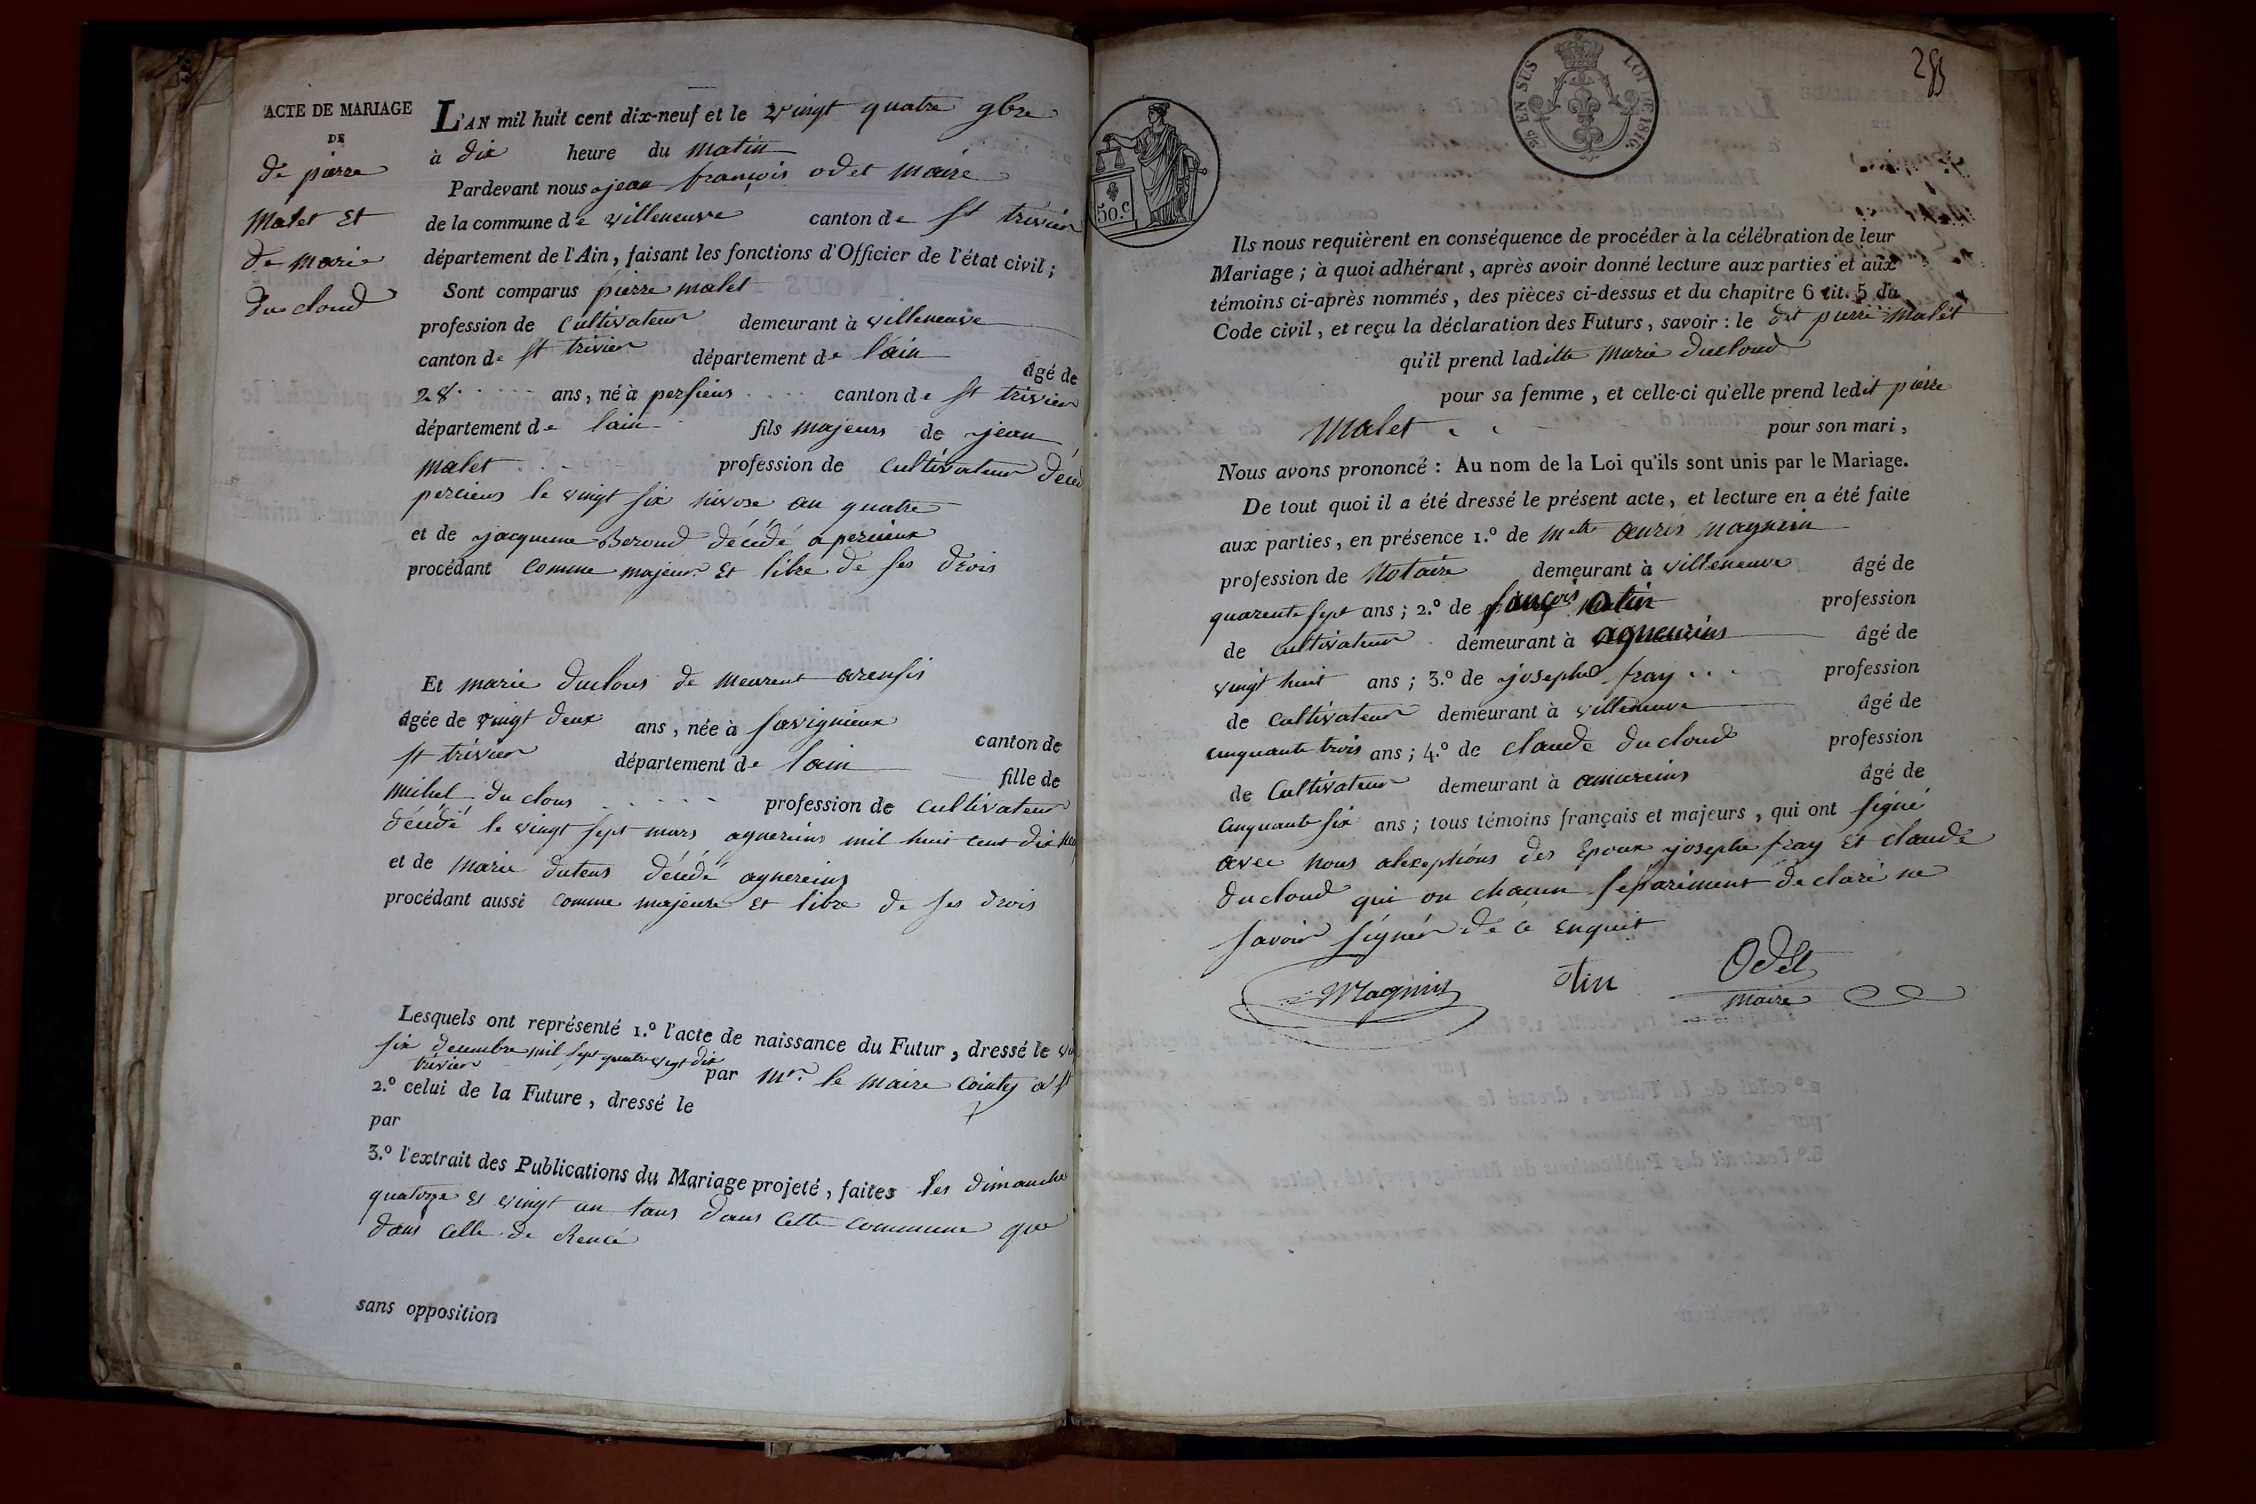 ACTE DE MARIAGE
DE
de pierre
Malet et
de marie
du cloud
L'AN mil huit cent dix-neuf et le vingt quatre 9bre
à dix heure du matin
Pardevant nous jean françois odet maire
de la commune de villeneuve canton de st trivier
département de l'Ain, faisant les fonctions d'Officier de l'état civil;
Sont comparus pierre malet
profession de cultivateur demeurant à villeneuve
canton de st trivier département de lain âgé de
28 ans, né à persieus canton de st trivier
département de lain fils majeurs de jean
malet profession de cultivateur
percieus le vingt six nivose an quatre
et de jacqueme Beroud décédé a percieux
procédant comme majeur et libre de ses drois
Et marie duclous de
âgée de vingt deux ans, née à savignieux canton de
st trivier département de lain fille de
mihel du clous profession de cultivateur
décédé le vingt sept mars agnereins mil huit cent dix
et de marie dutens décédé agnereins
procédant aussi comme majeure et libre de ses drois
Lesquels ont représenté 1.º l'acte de naissance du Futur, dressé le
six decembre mil sept quatre vigt dix par Mr. le maire cointy a st
trivier
2.º celui de la Future, dressé le
par
3.º l'extrait des Publications du Mariage projeté, faites les dimanche
quatorze et vingt un tans dans cette commune que
dans celle de Rencé
sans opposition
50.c
EN SUS LOI DE 1816.
Ils nous requièrent en conséquence de procéder à la célébration de leur
Mariage; à quoi adhérant, après avoir donné lecture aux parties et aux
témoins ci-après nommés, des pièces ci-dessus et du chapitre 6 tit. 5 du
Code civil, et reçu la déclaration des Futurs, savoir: le dit pierre Malet
qu'il prend laditte marie ducloud
pour sa femme, et celle-ci qu'elle prend ledit pierre
malet pour son mari,
Nous avons prononcé: Au nom de la Loi qu'ils sont unis par le Mariage.
De tout quoi il a été dressé le présent acte, et lecture en a été faite
aux parties, en présence 1.º de magnin
profession de Notaire demeurant à villeneuve âgé de
quarente sept ans; 2.º de françois otin profession
de cultivateur demeurant à agnereins âgé de
vingt huit ans; 3.º de josephe fray profession
de cultivateur demeurant à villeneuve âgé de
cinquante trois ans; 4.º de claude ducloud profession
de cultivateur demeurant à amareins âgé de
cinquante six ans; tous témoins français et majeurs, qui ont signé
avec nous des epoux josephe fray et claude
ducloud qui on chacun séparément declaré ne
savoir signér de ce enquit
Magnin otin Odet
maire